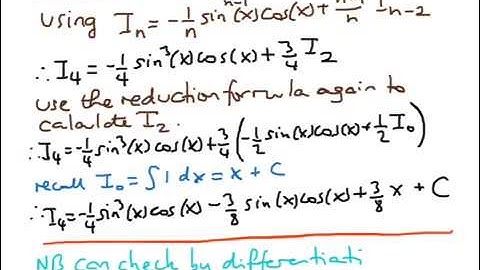 using Iₙ = -1/n sinⁿ⁻¹(x)cos(x) + n-1/n Iₙ₋₂
∴ I₄ = -1/4 sin³(x)cos(x) + 3/4 I₂
use the reduction formula again to
calculate I₂.
∴ I₄ = -1/4 sin³(x)cos(x) + 3/4 (-1/2 sin(x)cos(x) + 1/2 I₀)
recall I₀ = ∫1 dx = x + C
∴ I₄ = -1/4 sin³(x)cos(x) - 3/8 sin(x)cos(x) + 3/8 x + C
NB can check by differentiati